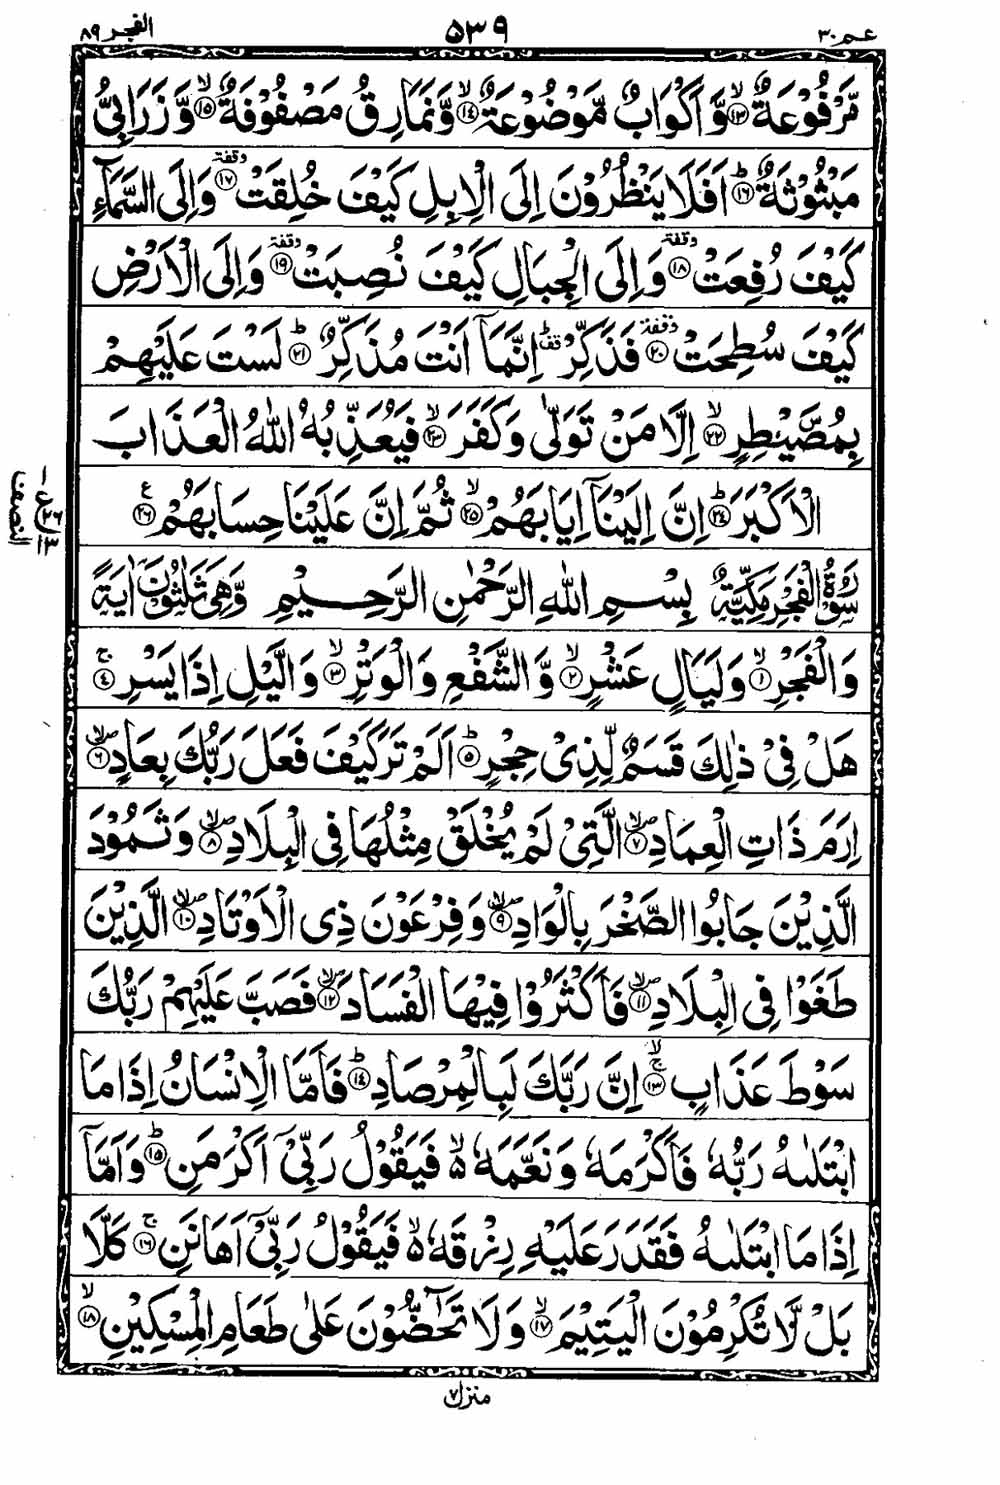 عم ۳۰
۵۳۹
الفجر ۸۹
مَّرْفُوْعَةٌ ۙ‏﴿۱۳﴾ وَّ اَكْوَابٌ مَّوْضُوْعَةٌ ۙ‏﴿۱۴﴾ وَّنَمَارِقُ مَصْفُوْفَةٌ ۙ‏﴿۱۵﴾ وَّ زَرَابِيُّ
مَبْثُوْثَةٌ ؕ‏﴿۱۶﴾ اَفَلَا يَنْظُرُوْنَ اِلَى الْاِبِلِ كَيْفَ خُلِقَتْ وقفة ﴿۱۷﴾ وَاِلَى السَّمَآءِ
كَيْفَ رُفِعَتْ وقفة ﴿۱۸﴾ وَاِلَى الْجِبَالِ كَيْفَ نُصِبَتْ وقفة ﴿۱۹﴾ وَاِلَى الْاَرْضِ
كَيْفَ سُطِحَتْ وقفة ﴿۲۰﴾ فَذَكِّرْ قف ؕ اِنَّمَاۤ اَنْتَ مُذَكِّرٌ ؕ‏﴿۲۱﴾ لَسْتَ عَلَيْهِمْ
بِمُصَۜيْطِرٍ ۙ‏﴿۲۲﴾ اِلَّا مَنْ تَوَلّٰى وَكَفَرَ ۙ‏﴿۲۳﴾ فَيُعَذِّبُهُ اللّٰهُ الْعَذَابَ
الْاَكْبَرَ ؕ‏﴿۲۴﴾ اِنَّ اِلَيْنَاۤ اِيَابَهُمْ ۙ‏﴿۲۵﴾ ثُمَّ اِنَّ عَلَيْنَا حِسَابَهُمْ ع ﴿۲۶﴾
النصف
سُوْرَةُ الْفَجْرِ مَكِّيَّةٌ بِسْمِ اللّٰهِ الرَّحْمٰنِ الرَّحِيْمِ وَّهِيَ ثَلٰثُوْنَ اٰيَةً
وَالْفَجْرِ ۙ‏﴿۱﴾ وَلَيَالٍ عَشْرٍ ۙ‏﴿۲﴾ وَّالشَّفْعِ وَالْوَتْرِ ۙ‏﴿۳﴾ وَالَّيْلِ اِذَا يَسْرِ ۚ‏﴿۴﴾
هَلْ فِيْ ذٰلِكَ قَسَمٌ لِّذِيْ حِجْرٍ ؕ‏﴿۵﴾ اَلَمْ تَرَ كَيْفَ فَعَلَ رَبُّكَ بِعَادٍ صلا ﴿۶﴾
اِرَمَ ذَاتِ الْعِمَادِ صلا ﴿۷﴾ الَّتِيْ لَمْ يُخْلَقْ مِثْلُهَا فِي الْبِلَادِ صلا ﴿۸﴾ وَثَمُوْدَ
الَّذِيْنَ جَابُوا الصَّخْرَ بِالْوَادِ صلا ﴿۹﴾ وَفِرْعَوْنَ ذِي الْاَوْتَادِ صلا ﴿۱۰﴾ الَّذِيْنَ
طَغَوْا فِي الْبِلَادِ صلا ﴿۱۱﴾ فَاَكْثَرُوْا فِيْهَا الْفَسَادَ صلا ﴿۱۲﴾ فَصَبَّ عَلَيْهِمْ رَبُّكَ
سَوْطَ عَذَابٍ ۙۚ‏﴿۱۳﴾ اِنَّ رَبَّكَ لَبِالْمِرْصَادِ ؕ‏﴿۱۴﴾ فَاَمَّا الْاِنْسَانُ اِذَا مَا
ابْتَلٰىهُ رَبُّهٗ فَاَكْرَمَهٗ وَنَعَّمَهٗ ۙ۬ فَيَقُوْلُ رَبِّيْۤ اَكْرَمَنِ ؕ‏﴿۱۵﴾ وَاَمَّاۤ
اِذَا مَا ابْتَلٰىهُ فَقَدَرَ عَلَيْهِ رِزْقَهٗ ۙ۬ فَيَقُوْلُ رَبِّيْۤ اَهَانَنِ ۚ‏﴿۱۶﴾ كَلَّا
بَلْ لَّا تُكْرِمُوْنَ الْيَتِيْمَ ۙ‏﴿۱۷﴾ وَلَا تَحٰٓضُّوْنَ عَلٰى طَعَامِ الْمِسْكِيْنِ ۙ‏﴿۱۸﴾
منزل ۷